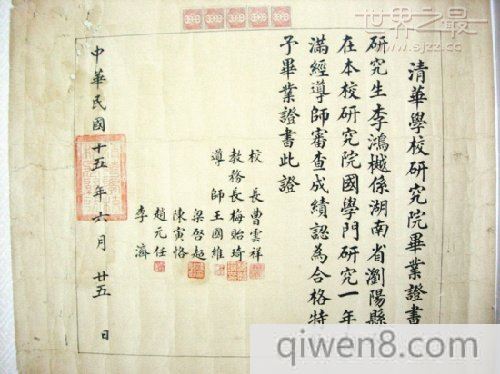 世界之最
www.sjzz.cc
清華學校研究院畢業證書
研究生李鴻樾係湖南省瀏陽縣
在本校研究院國學門研究一年
滿經導師審查成績認為合格特
予畢業證書此證
校長曹雲祥
教務長梅貽琦
導師王國維
梁啓超
陳寅恪
趙元任
李濟
中華民國十五年六月廿五日
qiwen8.com